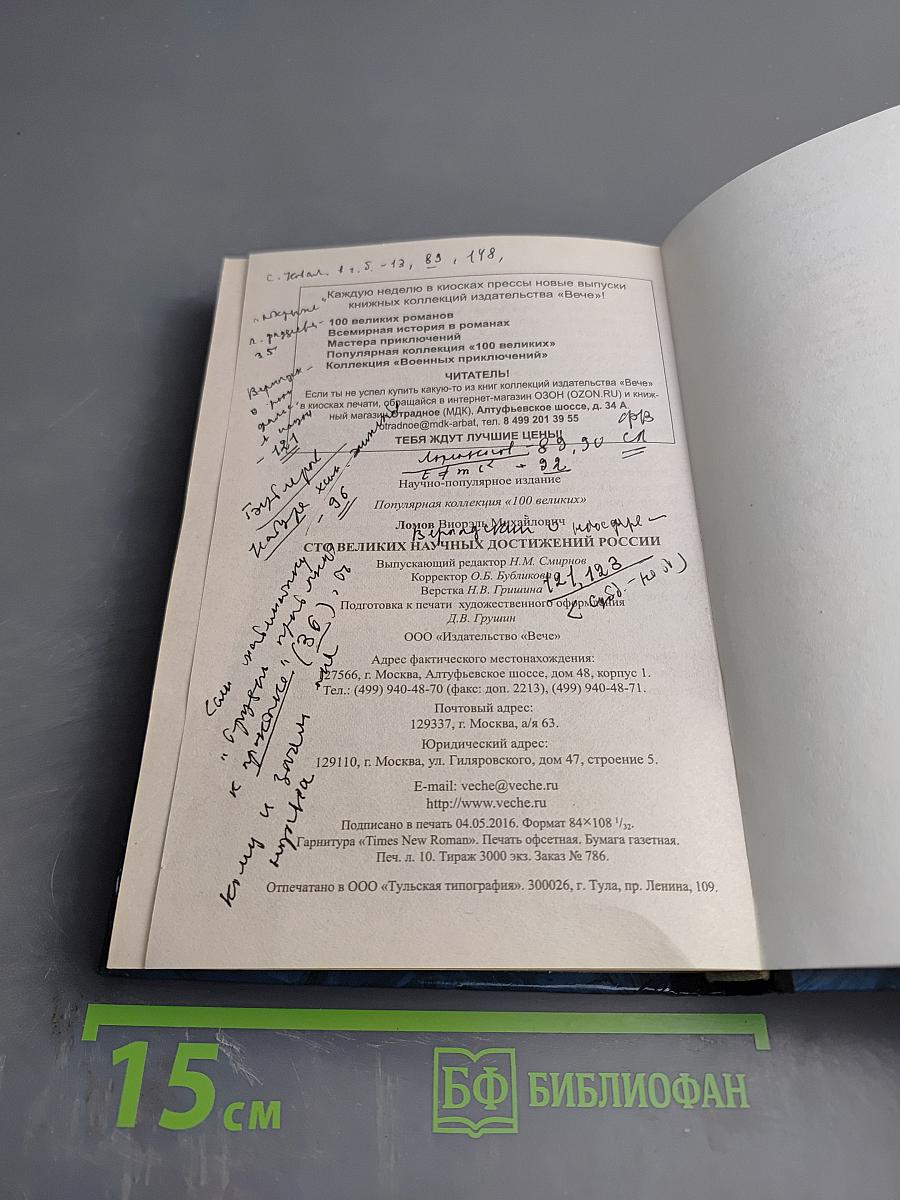 89, 148,
"Каждую неделю в киосках прессы новые выпуски
книжных коллекций издательства «Вече»!
35
100 великих романов
Всемирная история в романах
Мастера приключений
Популярная коллекция «100 великих»
Коллекция «Военных приключений»
ЧИТАТЕЛЬ!
Если ты не успел купить какую-то из книг коллекций издательства «Вече»
в киосках печати, обращайся в интернет-магазин ОЗОН (OZON.RU) и книж-
ный магазин Отрадное (МДК), Алтуфьевское шоссе, д. 34 А.
otradnoe@mdk-arbat, тел. 8 499 201 39 55
ТЕБЯ ЖДУТ ЛУЧШИЕ ЦЕНЫ!
- 121
Ломоносов - 89, 90
- 92
- 96
Научно-популярное издание
Популярная коллекция «100 великих»
Ломов Виорэль Михайлович
Вернадский о ноосфере -
СТО ВЕЛИКИХ НАУЧНЫХ ДОСТИЖЕНИЙ РОССИИ
121, 123
Выпускающий редактор Н.М. Смирнов
Корректор О.Б. Бубликова
Верстка Н.В. Гришина
Подготовка к печати художественного оформления
Д.В. Грушин
ООО «Издательство «Вече»
(36)
кому и зачем
Адрес фактического местонахождения:
127566, г. Москва, Алтуфьевское шоссе, дом 48, корпус 1.
Тел.: (499) 940-48-70 (факс: доп. 2213), (499) 940-48-71.
Почтовый адрес:
129337, г. Москва, а/я 63.
Юридический адрес:
129110, г. Москва, ул. Гиляровского, дом 47, строение 5.
E-mail: veche@veche.ru
http://www.veche.ru
Подписано в печать 04.05.2016. Формат 84×108 1/32.
Гарнитура «Times New Roman». Печать офсетная. Бумага газетная.
Печ. л. 10. Тираж 3000 экз. Заказ № 786.
Отпечатано в ООО «Тульская типография». 300026, г. Тула, пр. Ленина, 109.
15 см
БФ БИБЛИОФАН